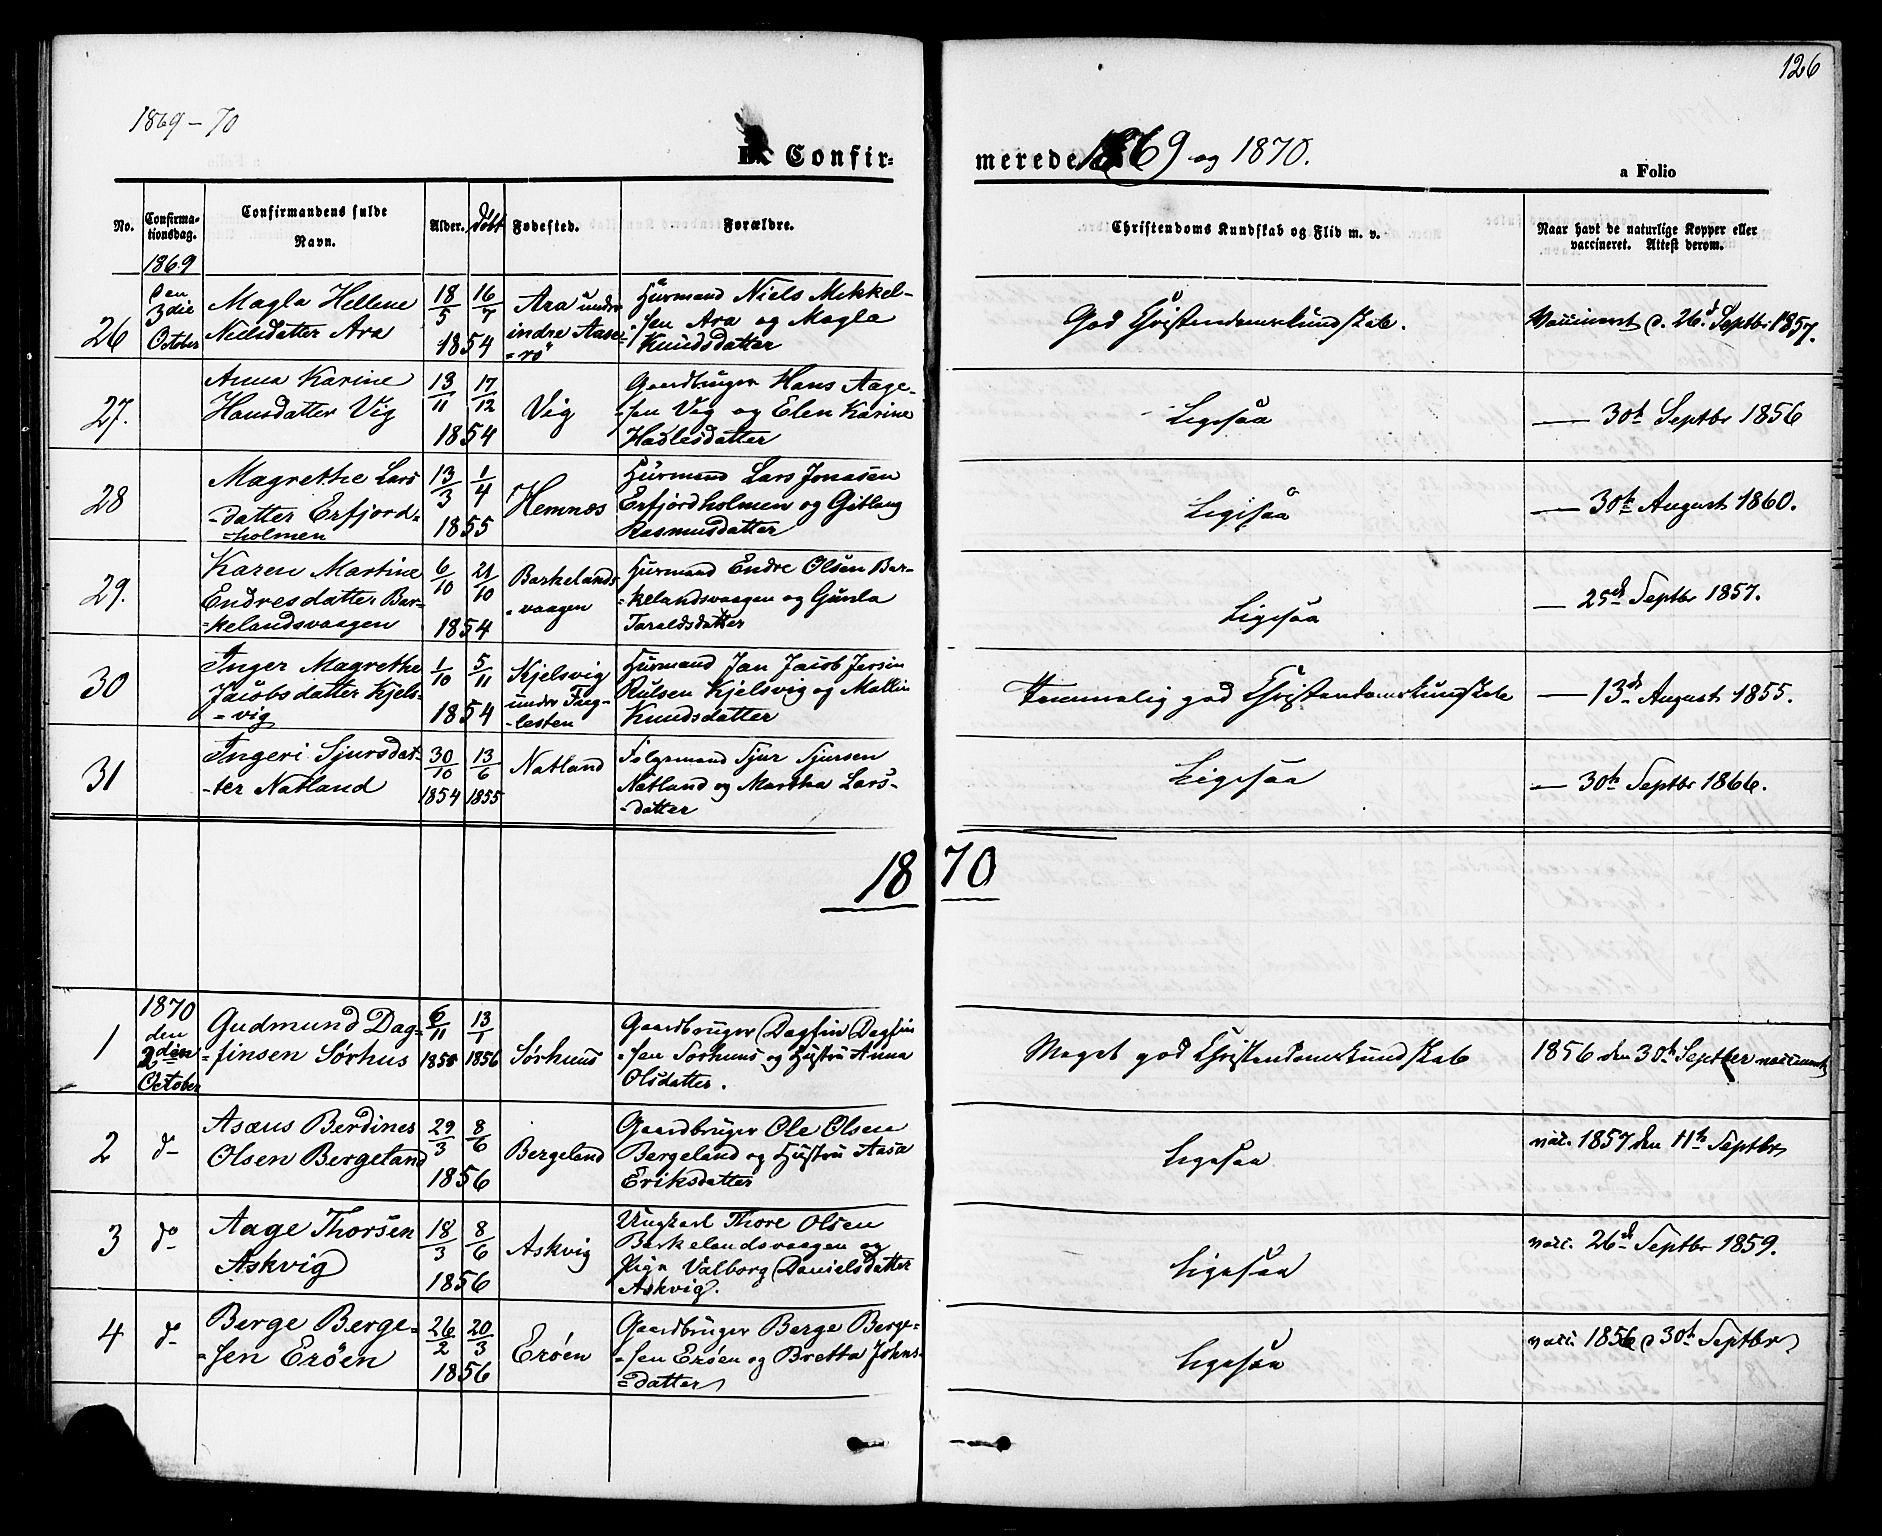 126
1869-70
Confirmerede 1869 og 1870.
a Folio
No. Confirmationsdag. Confirmandens fulde Navn. Alder. Døbt Fødested. Forældre. Christendoms Kundskab og Flid m. v. Naar havt de naturlige Kopper eller vaccineret. Attest derom.
1869
26 den 3die October
Magla Hellene
Nielsdatter Ara
18/5 16/7 1854
Ara under
indre Aase-
-rø
Huusmand Niels Mikkel-
-sen Ara og Magla
Knudsdatter
God Christendomskundskab.
Vaccineret d. 26d Septbr 1857.
27.
Anna Karine
Hansdatter Vig
13/11 17/12 1854
Vig
Gaardbruger Hans Aage-
-sen Vig og Elen Karine
Hadlesdatter
Ligesaa
— 30te Septbr 1856
28
Magrethe Lars
-datter Erfjord=
=holmen
13/3 1/4 1855
Hemnes
Huusmand Lars Jonasen
Erfjordholmen og Gitlaug
Rasmusdatter
Ligesaa
— 30te August 1860.
29.
Karen Martine
Endresdatter Bar-
=kelandsvaagen
6/10 21/10 1854
Barkelands
-vaagen
Huusmand Endre Olsen Bar-
=kelandsvaagen og Gunla
Taraldsdatter
Ligesaa
— 25de Septbr 1857.
30
Inger Magrethe
Jacobsdatter Kjels-
=vig
1/10 5/11 1854
Kjelsvig
under Fug-
-lesten
Huusmand Jan Jacob
Kjelsvig og Mallin
Knudsdatter
Temmelig god Christendomskundskab
— 13de August 1855.
31
Ingeri Sjursdat-
-ter Natland
30/10 1854 13/6 1855
Natland
Følgemand Sjur Sjursen
Natland og Martha Lars-
-datter
Ligesaa
— 30te Septbr 1866.
1870
1
1870 den 2den October
Gudmund Dag=
=finsen Sørhus
6/11 1855 13/1 1856
Sørhuus
Gaardbruger Dagfin Dagfin
=sen Sørhuus og Hustru Anna
Olsdatter.
Meget god Christendomskundskab
1856 den 30te Septber vaccineret
2 do
Asæus Berdines
Olsen Bergeland
29/3 8/6 1856
Bergeland
Gaardbruger Ole Olsen
Bergeland og Hustru Aasa
Eriksdatter
Ligesaa
vacc. 1857 den 11te Septbr
3 do
Aage Thorsen
Askvig
18/3 8/6 1856
Askvig
Ungkarl Thore Olsen
Barkelandsvaagen og
Pige Valborg Danielsdatter
Askvig.
Ligesaa
vacc. 26de Septbr 1859.
4 do
Berge Berge=
=sen Erøen
26/2 20/3 1856
Erøen
Gaardbruger Berge Berge=
=sen Erøen og Bretta Johns=
=datter
Ligesaa
vacc. 1856 d 30te Septbr